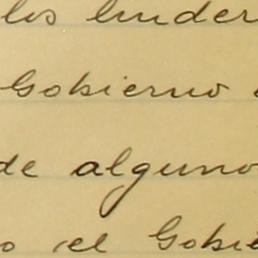 los linder
Gobierno
de alguno
el Gobie